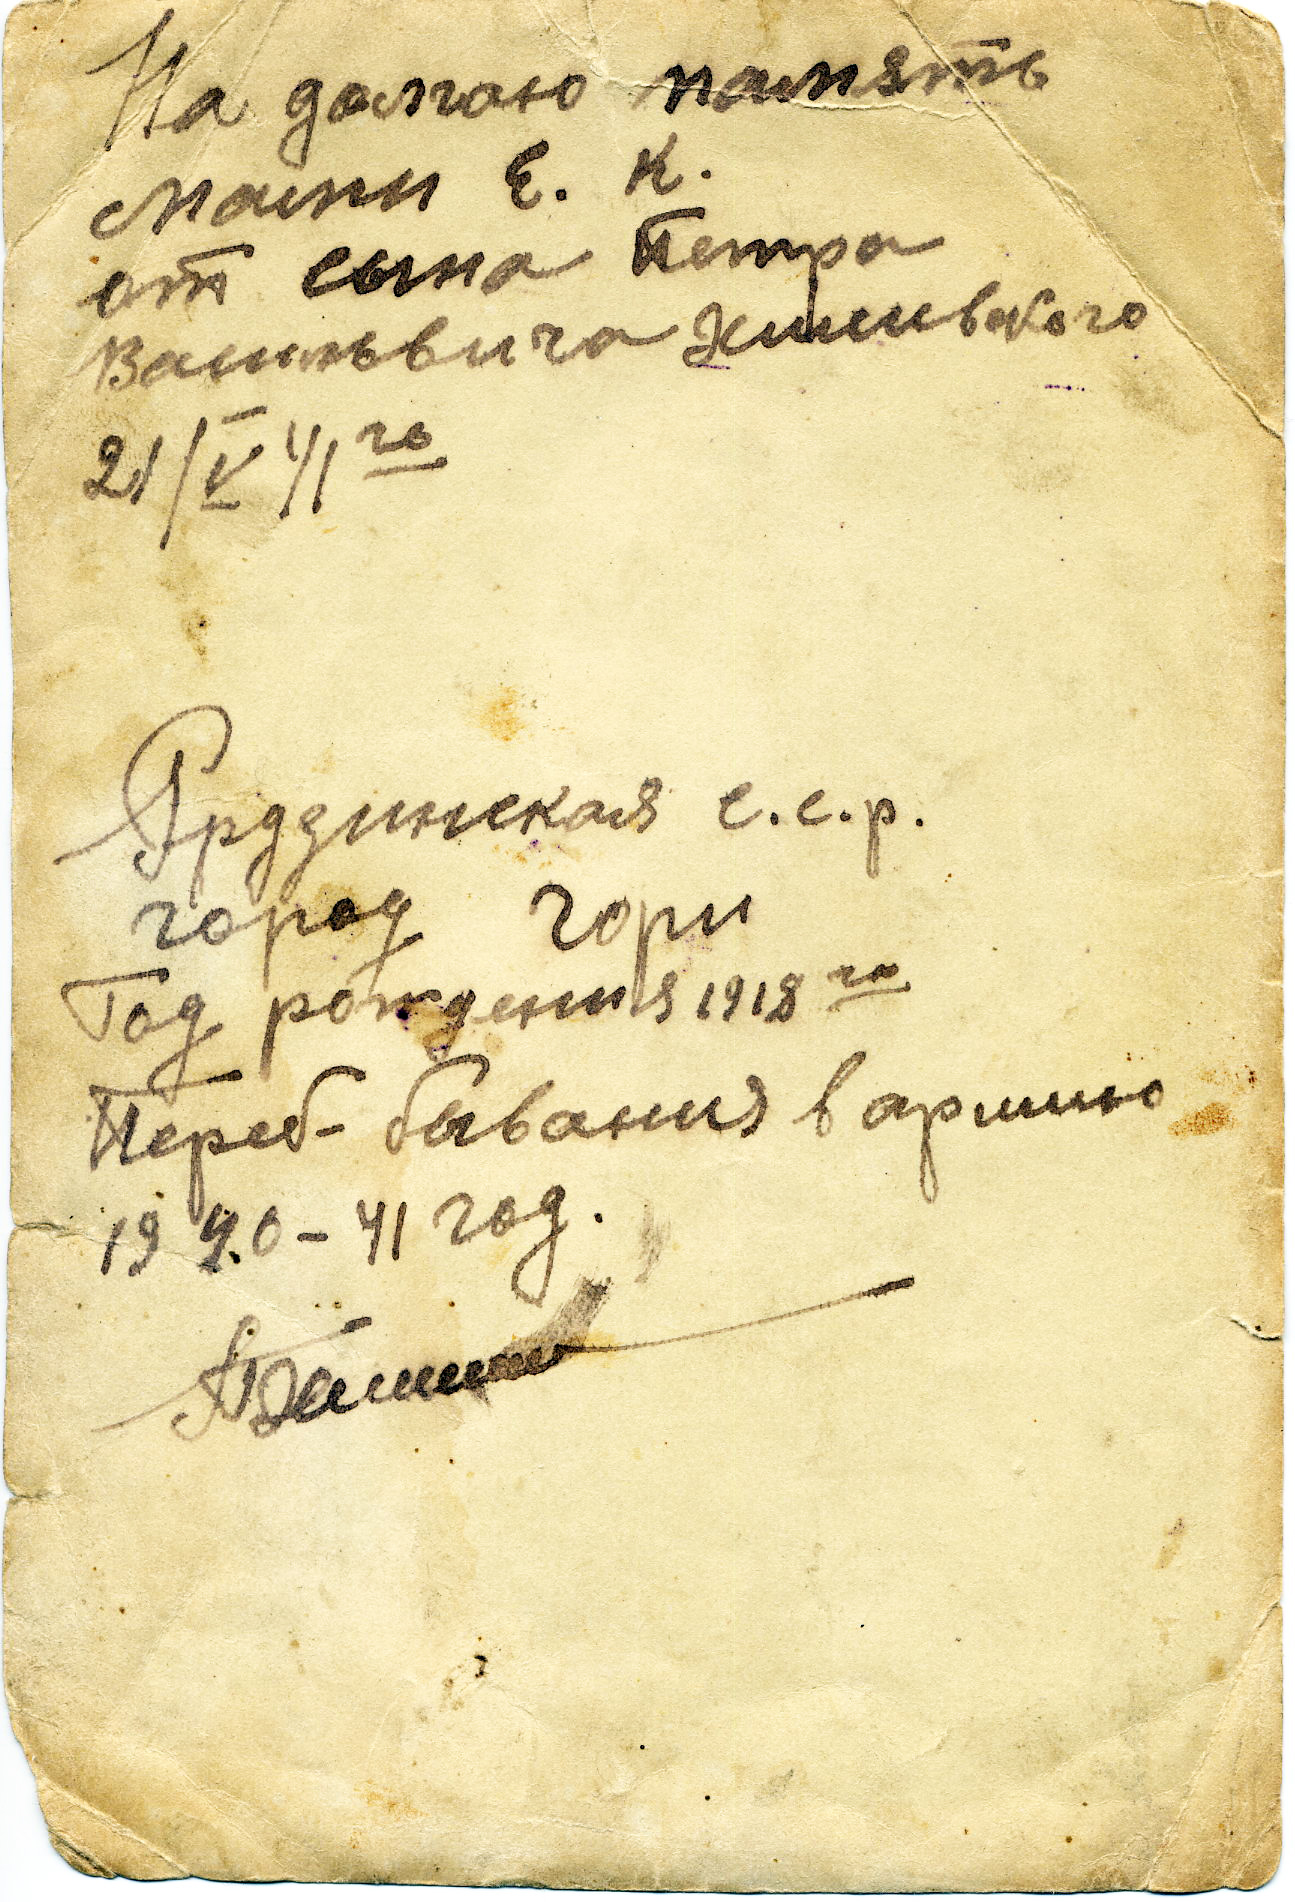 На долгаю память
мами Е. К.
от сына Петра
Васильвича
21/V 41 го
с.с.р.
город гори
Год рождения 1918 го
Переб-бывания в армию
1940-41 год.